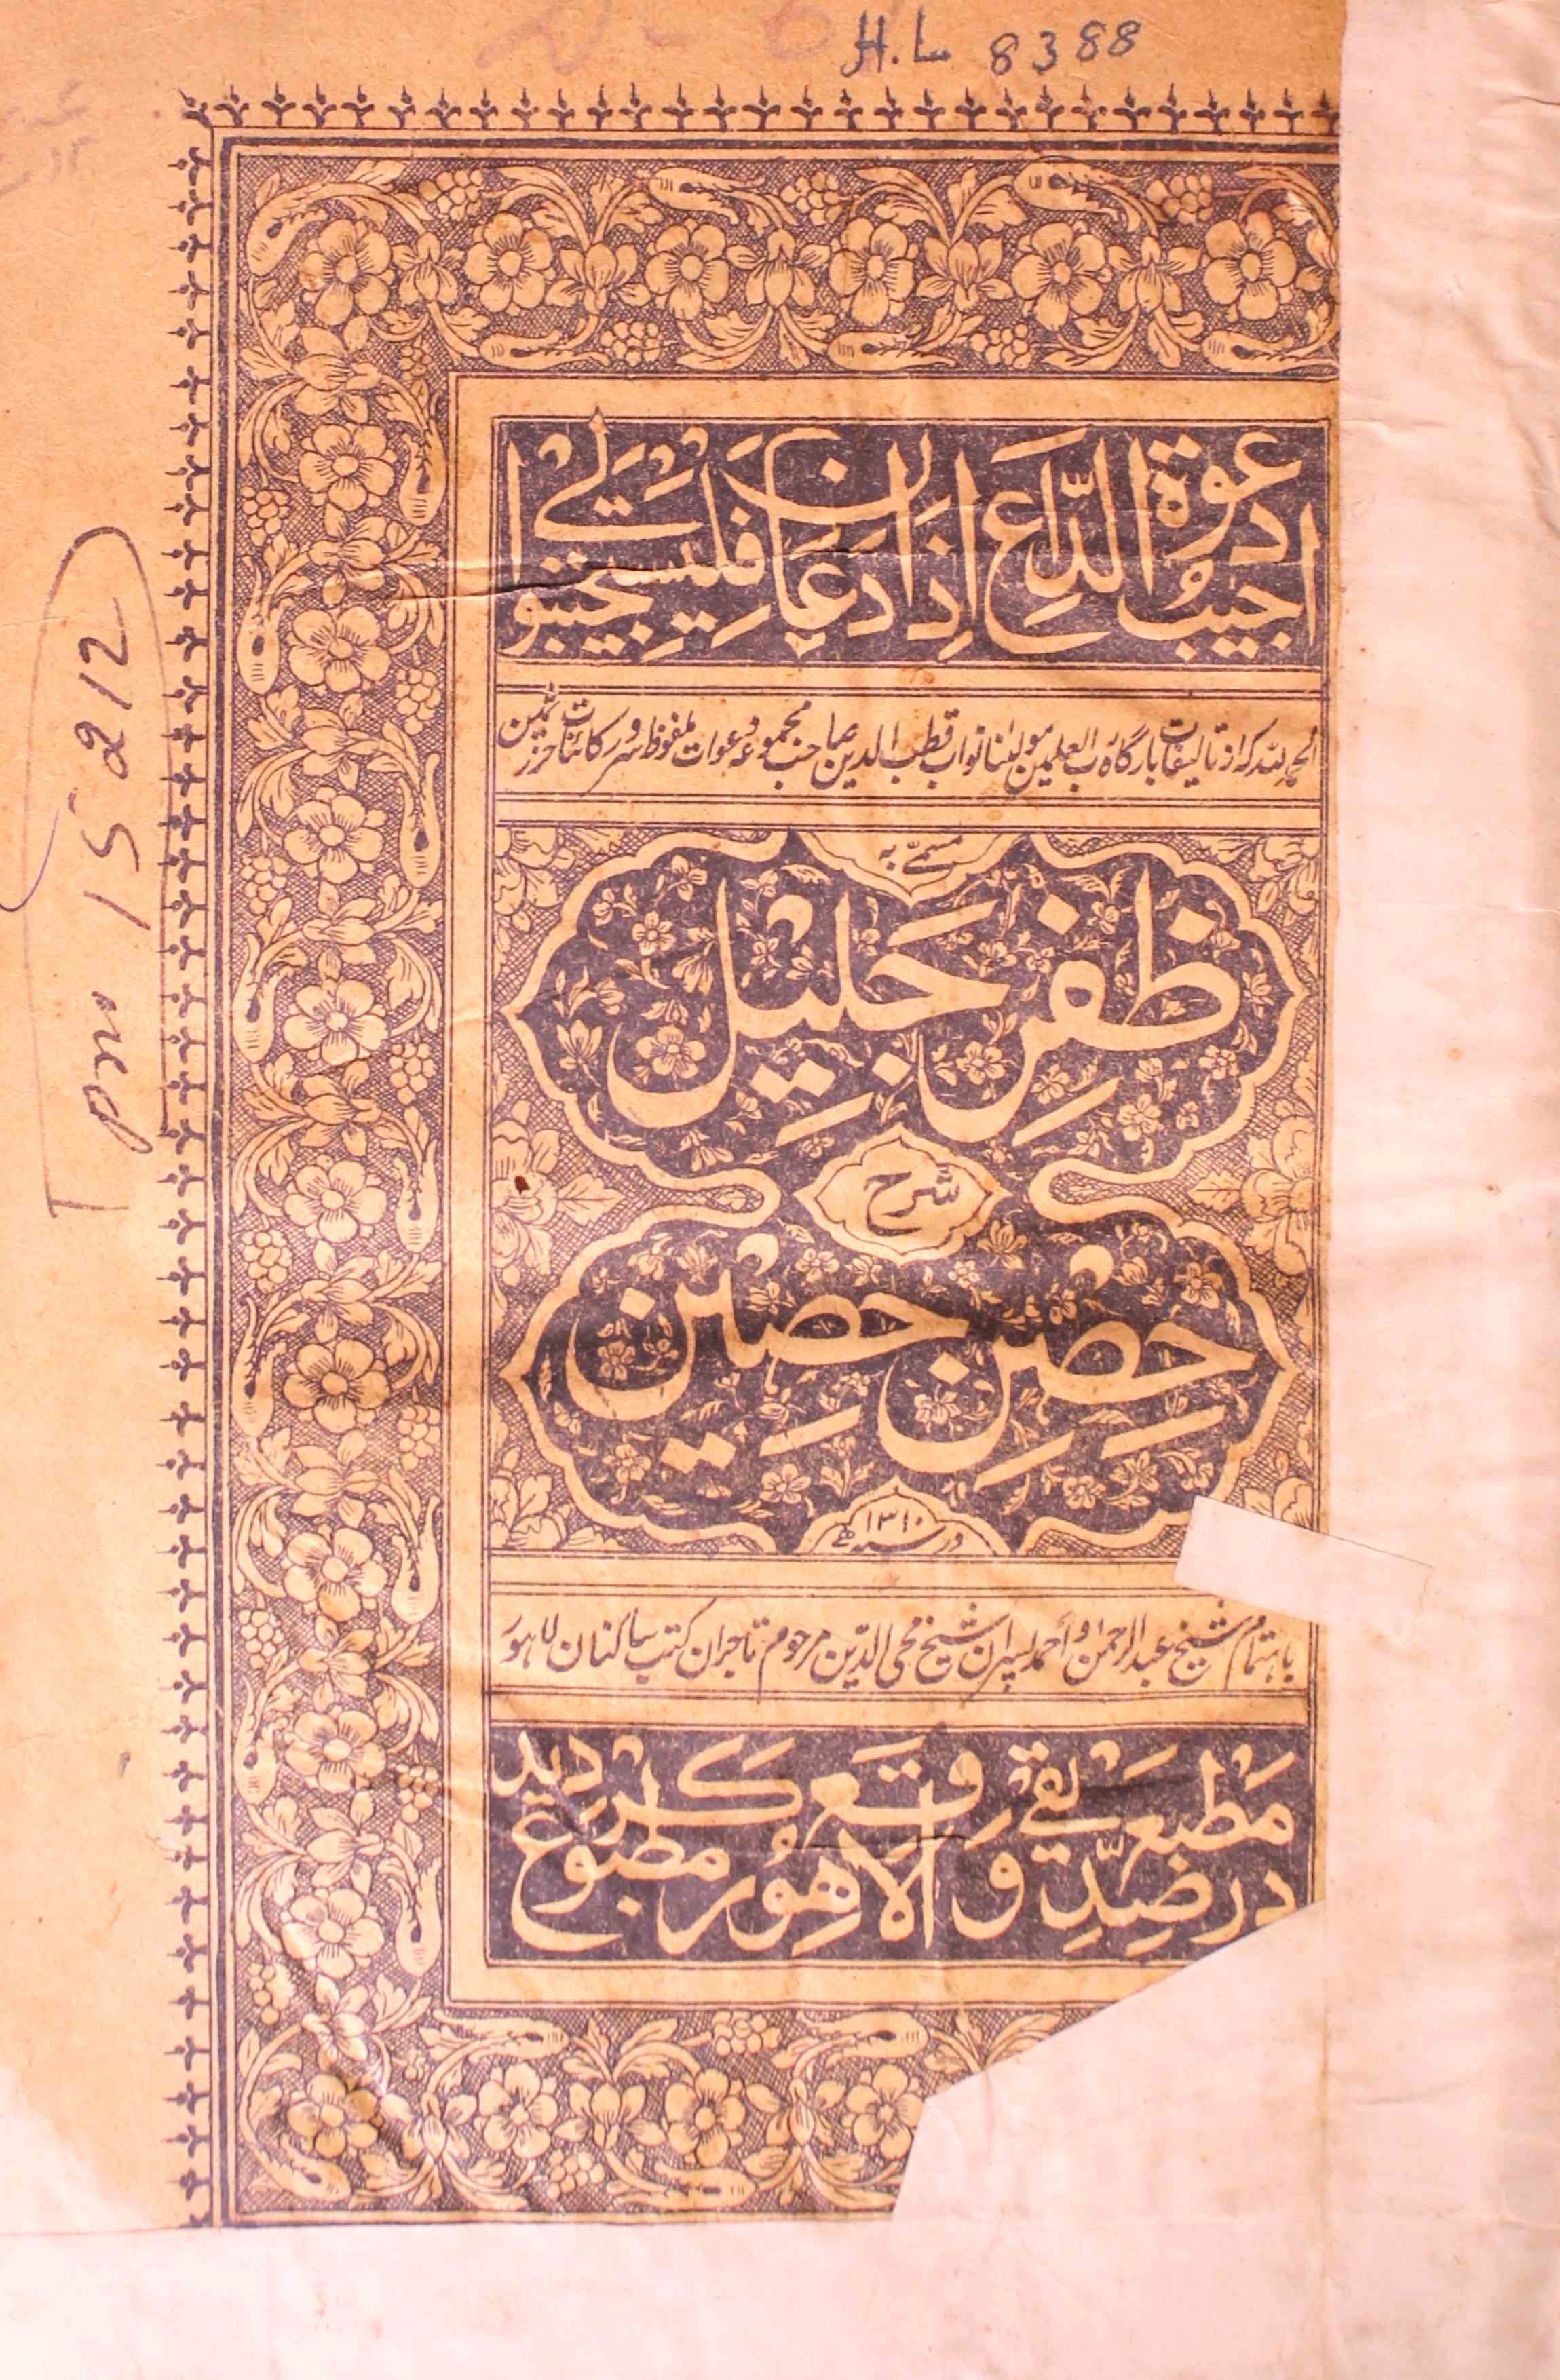 H.L 8388
اجیب دعوة الداع اذا دعان فلیستجیبوا لی
الحمد للہ کہ از تالیفات بارگاہ رب العلمین مولٰنا نواب قطب الدین صاحب مجموعہ دعوات ملفوظ سرور کائنات حرز ثمین
مسمّٰے بہ
ظَفَرِ جَلِیْل
شرح
حِصْنِ حَصِیْن
در سنہ ۱۳۱۰ھ
باہتمام شیخ عبدالرحمن و احمد پسران شیخ محی الدین مرحوم تاجران کتب ساکنان لاہور
در مطبع صدیقی واقع لاہور مطبوع گردید
Pm 15212